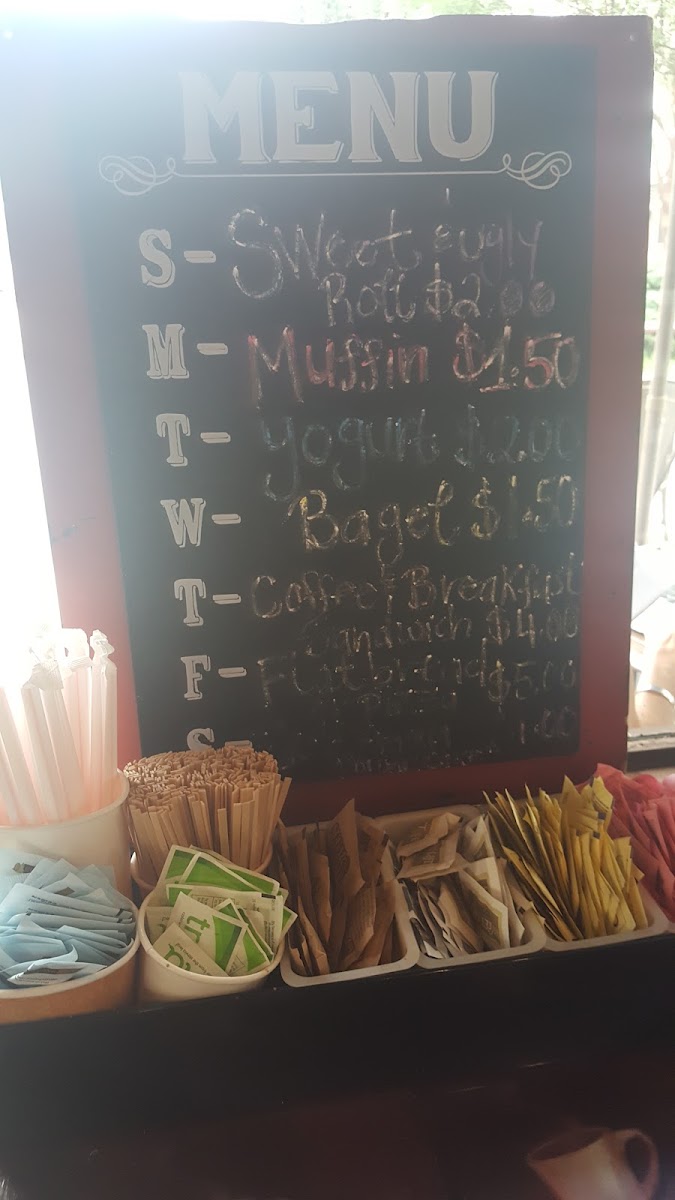 MENU
S- Sweet & ugly
Roll $2.00
M- Muffin $1.50
T- Yogurt $2.00
W- Bagel $1.50
T- Coffee & Breakfast
Sandwich $4.00
F- Flatbread $5.00
S-